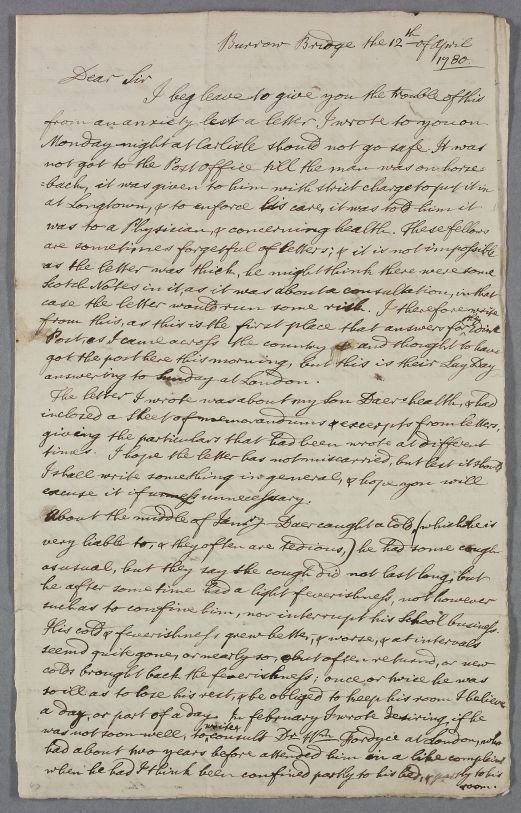 Burrow Bridge the 12th of April
1780.
Dear Sir
I beg leave to give you the trouble of this
from an anxiety lest a letter I wrote to you on
Monday night at Carlisle should not go safe. It was
not got to the Post Office till the man was on horse=
=back, it was given to him with strict charge to put it in
at Longtown, & to enforce his care, it was told him it
was to a Physician, & concerning health. These fellows
are sometimes forgetful of letters; & it is not impossible
as the letter was thick, he might think there were some
Scotch Notes in it, as it was about a consultation, in that
case the letter would run some risk. I therefore write
from this, as this is the first place that answers for the Edinr
Post, as I came across the country and thought to have
got the post here this morning, but this is their Lay Day
answering to Sunday at London.
The letter I wrote was about my son Daer's health, & had
inclosed a sheet of memorandums & excerpts from letters,
giving the particulars that had been wrote at different
times. I hope the letter has not miscarried, but lest it should
I shall write something in general, & hope you will
excuse it if unnecessary.
About the middle of Janry Daer caught a Cold, (which he is
very liable to, & they often are tedious,) he had some cough
as usual, but they say the cough did not last long, but
he after some time had a light feverishness, not however
such as to confine him, nor interrupt his School business.
His cold & feverishness grew better, & worse, & at intervals
seemd quite gone, or nearly so, but often returnd, or new
colds brought back the feverishness; once or twice he was
so ill as to lose his rest, & be obliged to keep his room I believe
a day, or part of a day. In February I wrote desiring, if he
was not soon well, to consult Dr. Wm Fordyce at London, who
had about two years before attended him in a like complaint
when he had I think been confined partly to his bed, & partly to his
room.